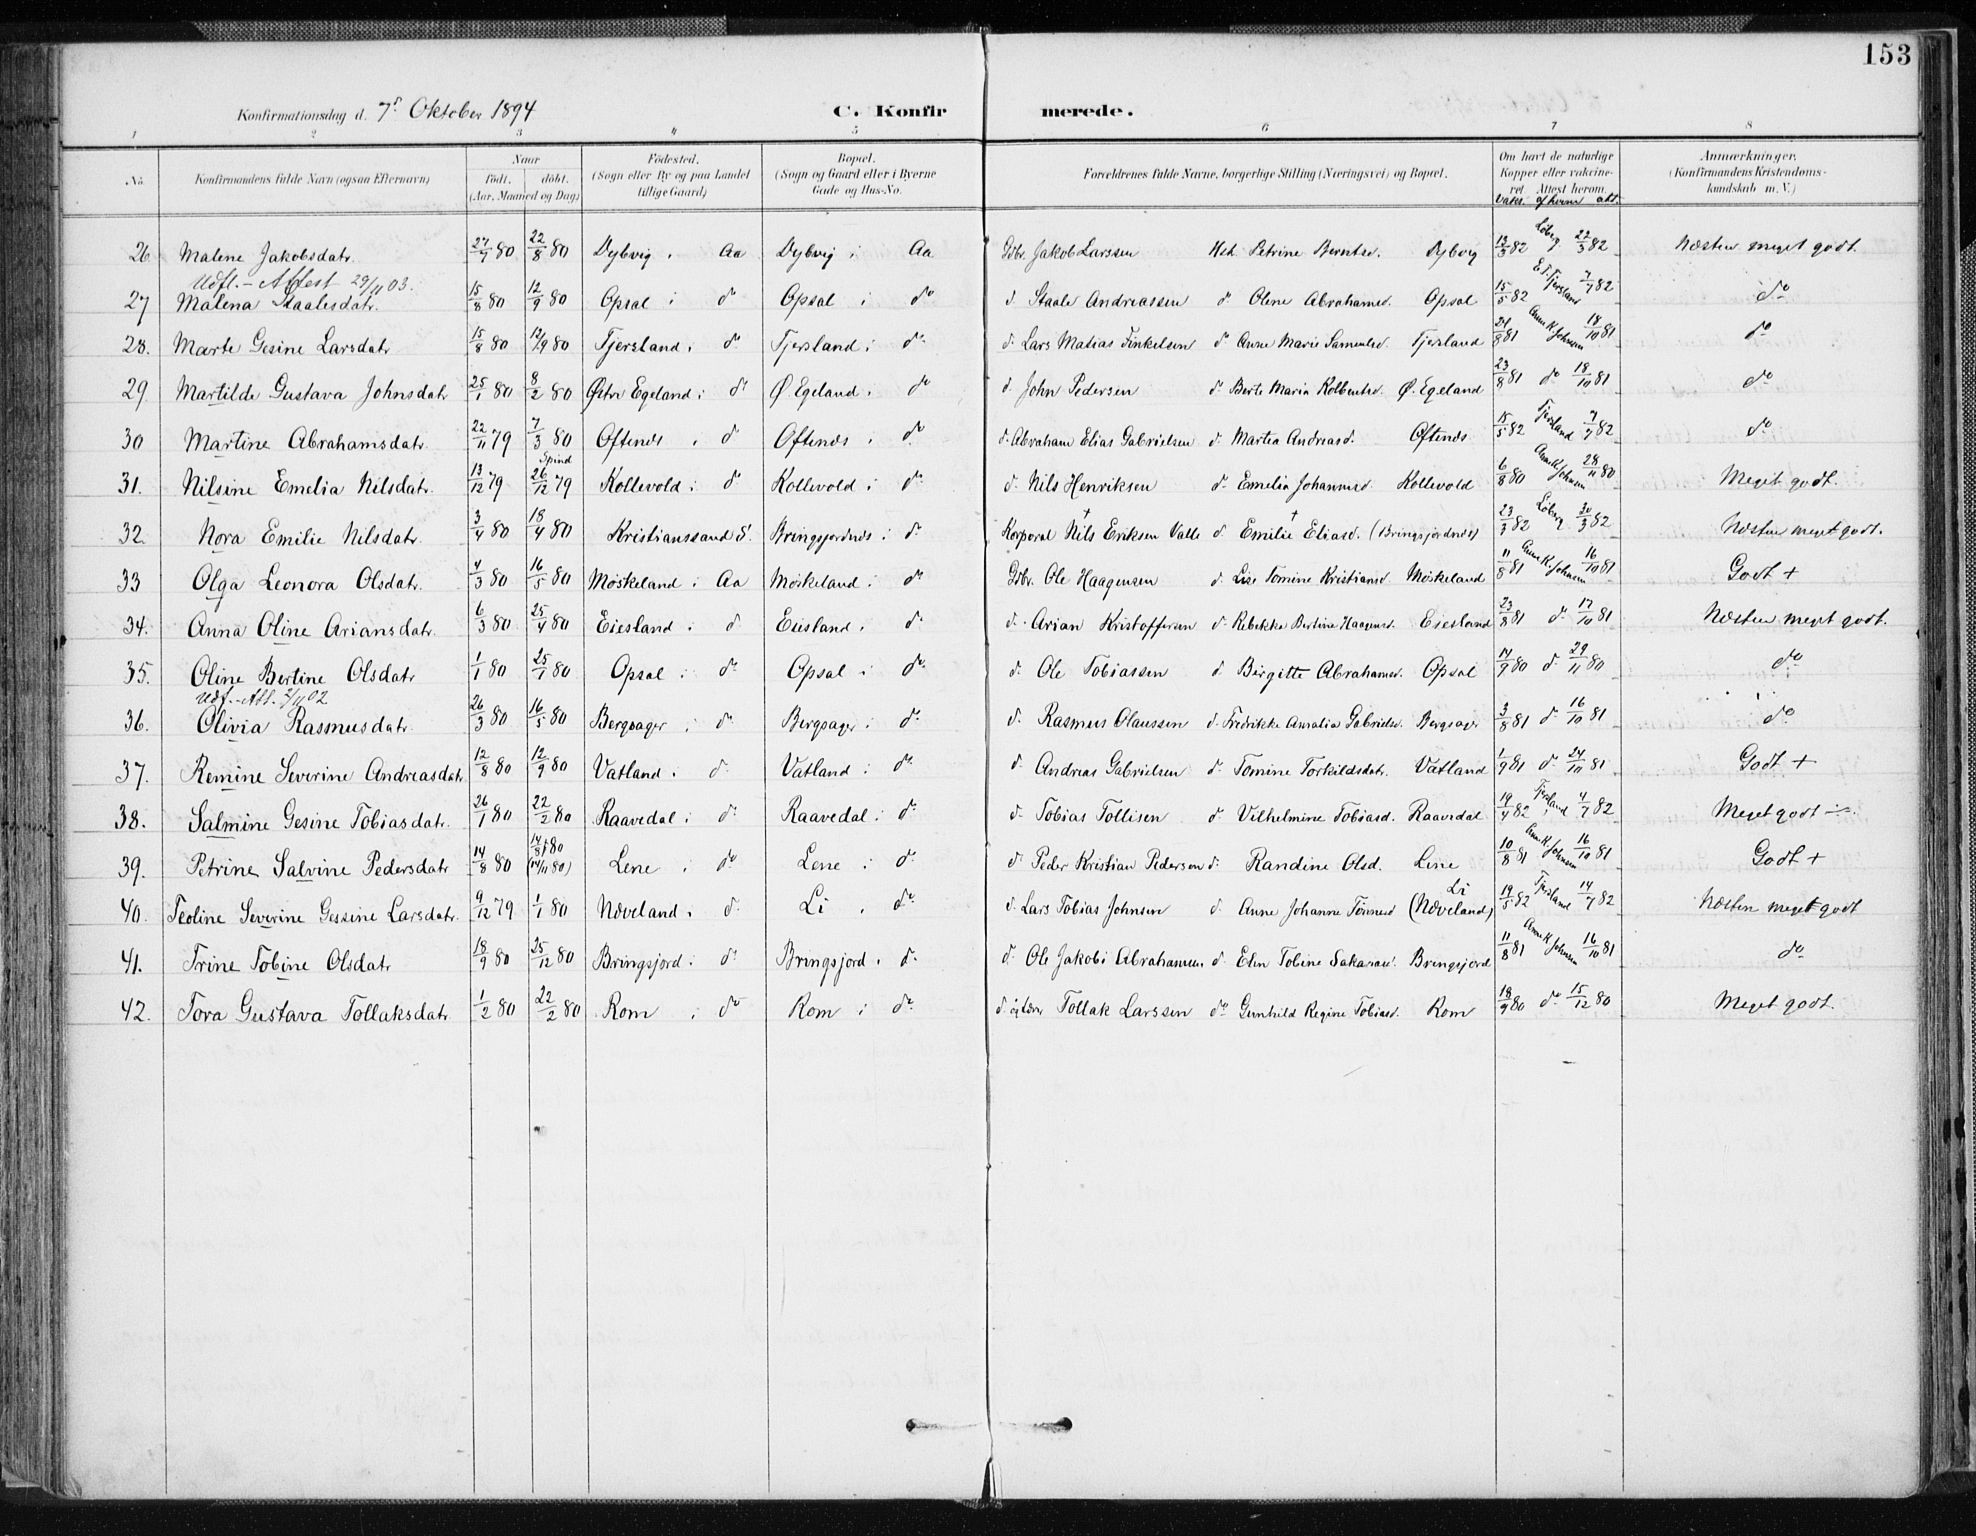 153
Konfirmationsdag d. 7de Oktober 1894 C. Konfirmerede.
1 2 3 4 5 6 7 8
No. Konfirmandens fulde Navn (ogsaa Efternavn) Naar födt. döbt. (Aar, Maaned og Dag) Födested. (Sogn eller By og paa Landet tillige Gaard) Bopæl. (Sogn og Gaard eller i Byerne Gade og Hus-No. Forældrenes fulde Navne, borgerlige Stilling (Næringsvei) og Bopæl. Om havt de naturlige Kopper eller vaccineret. Attest herom. Anmærkninger. (Konfirmandens Kristendomskundskab m. V.)
vakc. af hvem att.
26 Malene Jakobsdatr. 27/7 80 22/8 80 Dybvig i Aa Dybvig i Aa Gdbr. Jakob Larssen Hst. Petrine Berntsd. Dybvig 12/3 82 Löberg 22/3 82 Næsten meget godt.
Udfl. - Attest 29/11 03.
27 Malena Staalesdatr. 15/8 80 12/9 80 Opsal i do Opsal i do d. Staale Andreassen do Olene Abrahamsd. Opsal 15/5 82 E.T. Tjersland 7/7 82 do
28. Marte Gesine Larsdatr 15/8 80 12/9 80 Tjersland i do Tjersland i do d. Lars Matias Finkelsen do Anne Marie Samuelsd. Tjersland 24/8 81 Anne K. Johnsen 18/10 81 do
29 Martilde Gustava Johnsdatr 25/1 80 8/2 80 Östre Egeland i do Ö. Egeland i do d. John Pedersen do Berte Maria Kolbentsd. Ö. Egeland 23/8 81 do 18/10 81 do
30 Martine Abrahamsdatr. 22/11 79 7/3 80 Öftenes i d Öftenes i do d. Abraham Elias Gabrielsen d. Martea Andreasd. Öftenes 15/5 82 Tjersland 7/7 82 do
31. Nilsine Emelia Nilsdatr. 13/12 79 Spind 26/12 79 Kollevold i do Kollevold i do d. Nils Henriksen d. Emelia Johannesd Kollevold 6/8 80 Anne K. Johnsen 28/11 80 Meget godt.
32. Nora Emilie Nilsdatr. 3/4 80 18/4 80 Kristianssand S. Bringsjordnes i do Korporal † Nils Eriksen Valle d. † Emilie Eliasd. (Bringsjordnes) 23/3 82 Löberg 30/3 82 Næsten meget godt.
33 Olga Leonora Olsdatr. 4/3 80 16/5 80 Möskeland i Aa Möskeland i do Gdbr. Ole Haagensen d. Lise Tomine Kristiansd. Möskeland 11/8 81 Anne K. Johnsen 16/10 81 Godt +
34. Anna Oline Ariansdatr. 6/3 80 25/4 80 Eiesland i d Eiesland i do d. Arian Kristoffersen d. Rebekke Bertine Haagensd. Eiesland 23/8 81 do 17/10 81 Næsten meget godt.
35. Oline Bertine Olsdatr 1/1 80 25/1 80 Opsal i do Opsal i do d. Ole Tobiassen d. Birgitte Abrahamsd. Opsal 14/9 80 d. 29/11 80 do
Udf. - Att. 2/11 02
36. Olivia Rasmusdatr. 26/3 80 16/5 80 Bergsager i do Bergsager i do d. Rasmus Olaussen d. Fredrikke Amalia Gabrielsd. Bergsager 3/8 81 d. 16/10 81 do
37. Remine Severine Andreasdatr 12/8 80 12/9 80 Vatland i d. Vatland i do d. Andreas Gabrielsen d. Tomine Torkildsdatr. Vatland 1/9 81 d. 24/10 81 Godt +
38. Salmine Gesine Tobiasdatr. 26/1 80 22/2 80 Raavedal i do Raavedal i do d. Tobias Tollisen d. Vilhelmine Tobiasd. Raavedal 19/4 82 Tjersland 4/7 82 Meget godt -
39. Petrine Salvine Pedersdatr 14/8 80 14/8 80 (14/11 80) Lene i do Lene i do do Peder Kristian Pedersen d. Randine Olsd. Lene 10/8 81 Anne K. Johnsen 16/10 81 Godt +
40. Teoline Severine Gessine Larsdatr. 9/12 79 1/1 80 Næveland i d. Li i do d. Lars Tobias Johnsen d. Anne Johanne Tönnesd Li (Næveland) 19/5 82 Tjersland 14/7 82 Næsten meget godt
41. Trine Tobine Olsdatr 18/9 80 25/12 80 Bringsjord i do Bringsjord i do d. Ole Jakobi Abrahamsen d. Elen Tobine Sakarasd. Bringsjord 11/8 81 Anne K. Johnsen 16/10 81 do
42. Tora Gustava Tollaksdatr. 1/2 80 22/2 80 Rom i do Rom i do d. Tollak Larssen do Gunhild Regine Tobiasd. Rom 18/9 80 do 15/12 80 Meget godt.